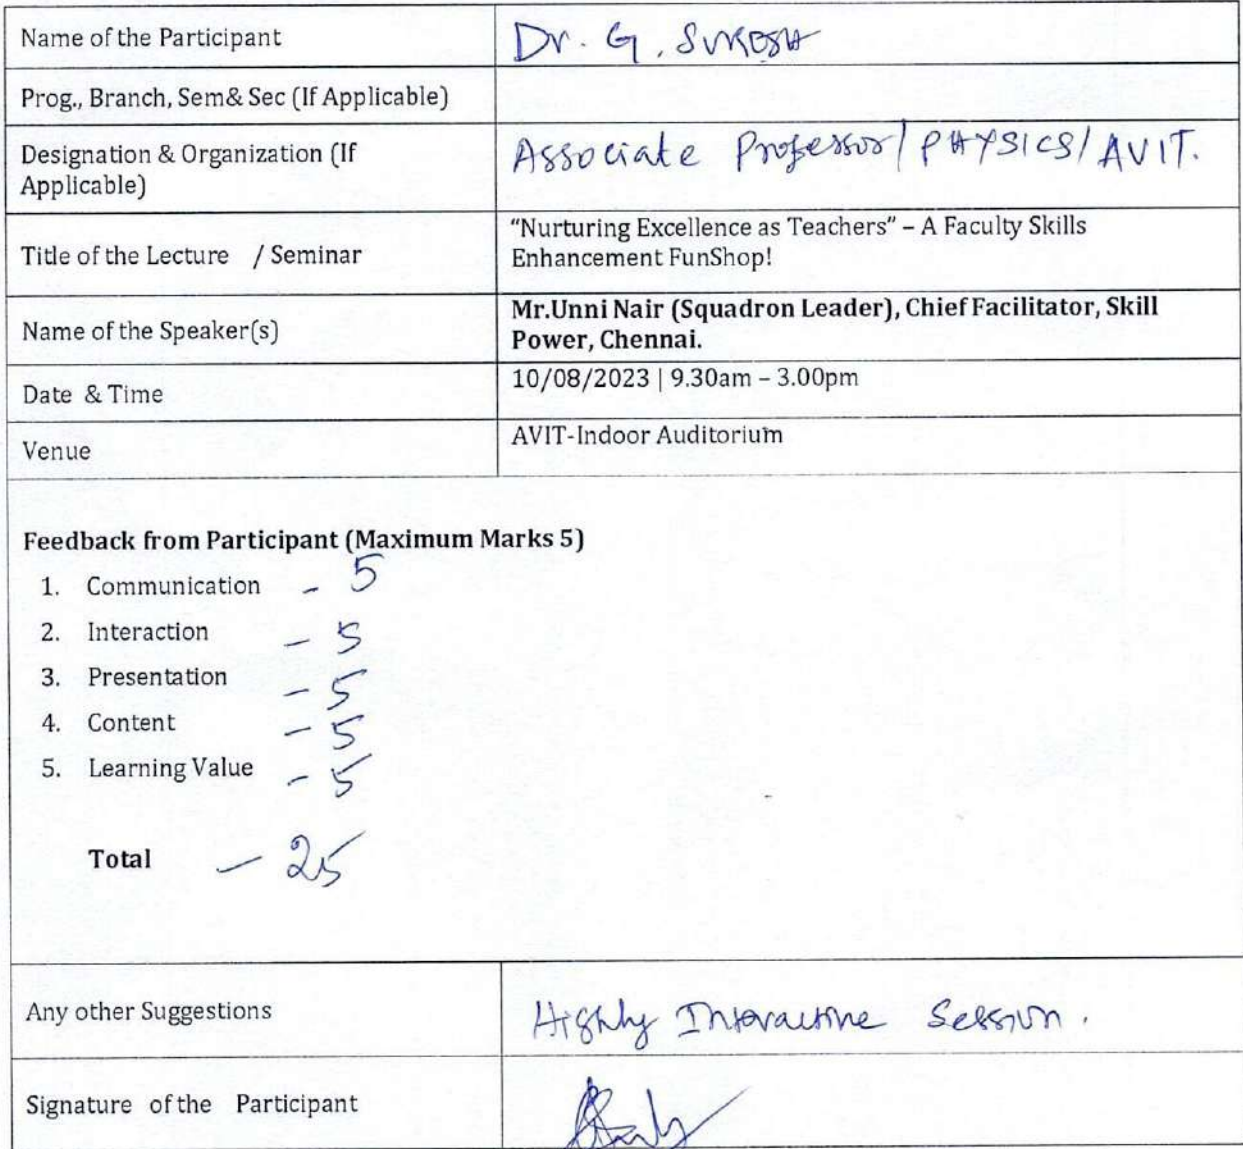 Name of the Participant
Dr. G. SURESH
Prog., Branch, Sem& Sec (If Applicable)
Designation & Organization (If
Applicable)
Associate Professor/PHYSICS/AVIT.
Title of the Lecture / Seminar
“Nurturing Excellence as Teachers” – A Faculty Skills
Enhancement FunShop!
Name of the Speaker(s)
Mr.Unni Nair (Squadron Leader), Chief Facilitator, Skill
Power, Chennai.
Date & Time
10/08/2023 | 9.30am – 3.00pm
Venue
AVIT-Indoor Auditorium
Feedback from Participant (Maximum Marks 5)
1. Communication - 5
2. Interaction - 5
3. Presentation - 5
4. Content - 5
5. Learning Value - 5
Total - 25
Any other Suggestions
Highly Interactive Session.
Signature of the Participant